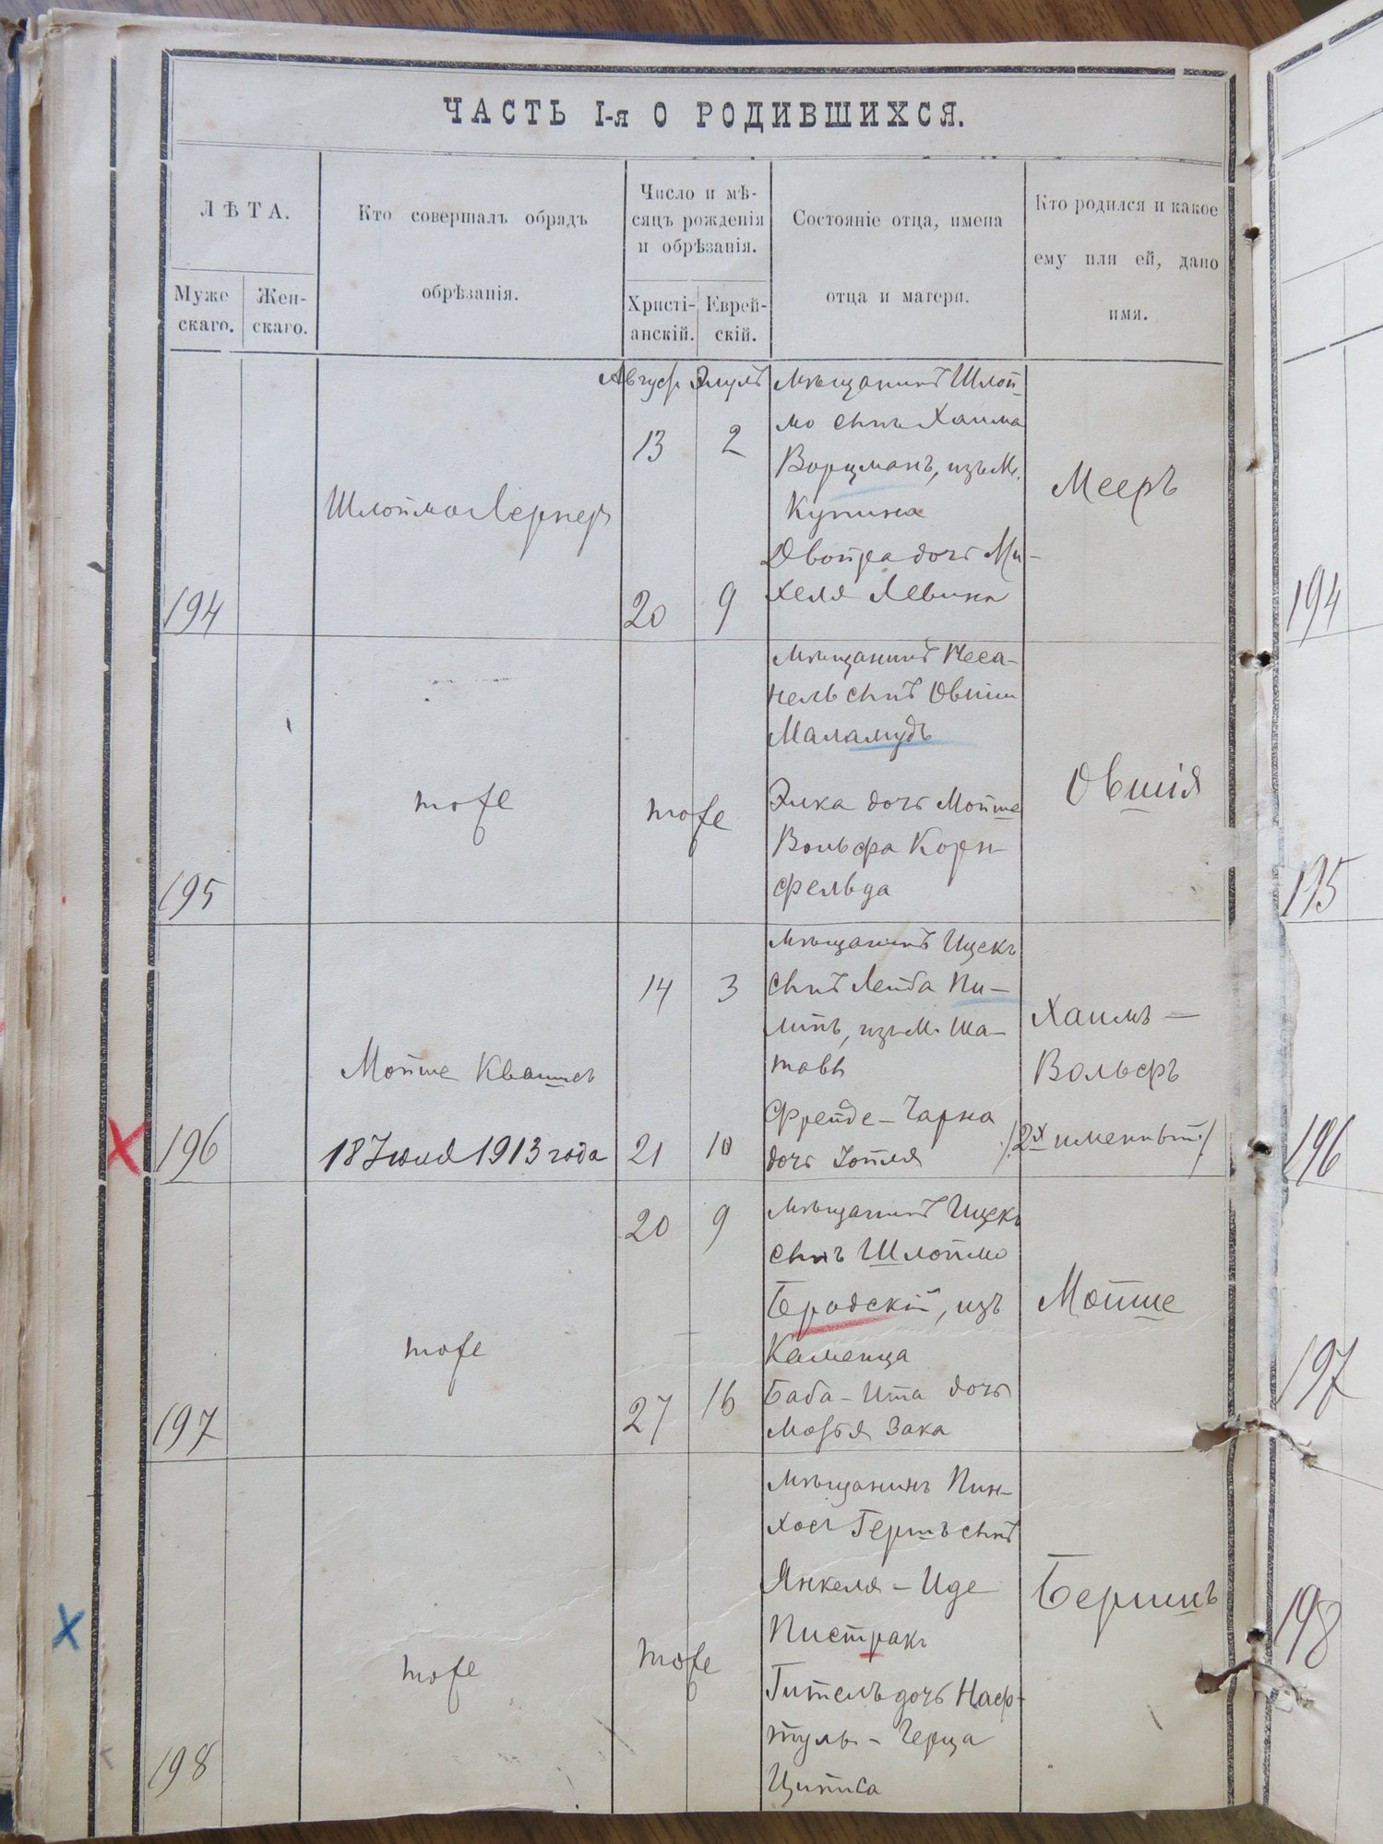 ЧАСТЬ I-я О РОДИВШИХСЯ.
ЛѢТА.
Муже
скаго.
Жен-
скаго.
Кто совершалъ обрядъ
обрѣзанія.
Число и мѣ-
сяцъ рожденія
и обрѣзанія.
Христі-
анскій.
Еврей-
скій.
Состояніе отца, имена
отца и матери.
Кто родился и какое
ему или ей, дано
имя.
194
Шлойма Лернеръ
Август Элулъ
13 2
20 9
Мѣщанинъ Шлой
мо сынъ Хаима
Ворцманъ, изъ М.
Купина
Двойра дочь Ми-
хеля Левина
Мееръ
194
195
тоже
тоже
Мѣщанинъ Неса-
нель сынъ Овшии
Маламудъ
Элка дочь Мойше
Вольфа Корн-
фельда
Овшія
195
196
Мойше Квашетъ
18 Іюля 1913 года
14 3
21 10
Мѣщанинъ Ицекъ
сынъ Лейба Пи-
линъ, изъ М. Ша-
тавы
Фрейде-Чарна
дочь Іойля
Хаимъ-
Вольфъ
/2х именный/
196
197
тоже
20 9
27 16
Мѣщанинъ Ицекъ
сынъ Шлоймо
Бродскій, изъ
Каменца
Баба-Ита дочь
Мотя Зака
Мойше
197
198
тоже
тоже
Мѣщанинъ Пин-
хосъ Гершъ сынъ
Янкеля-Иде
Пистракъ
Гитель дочь Наф-
туль-Герца
Цитиса
Бершъ
198